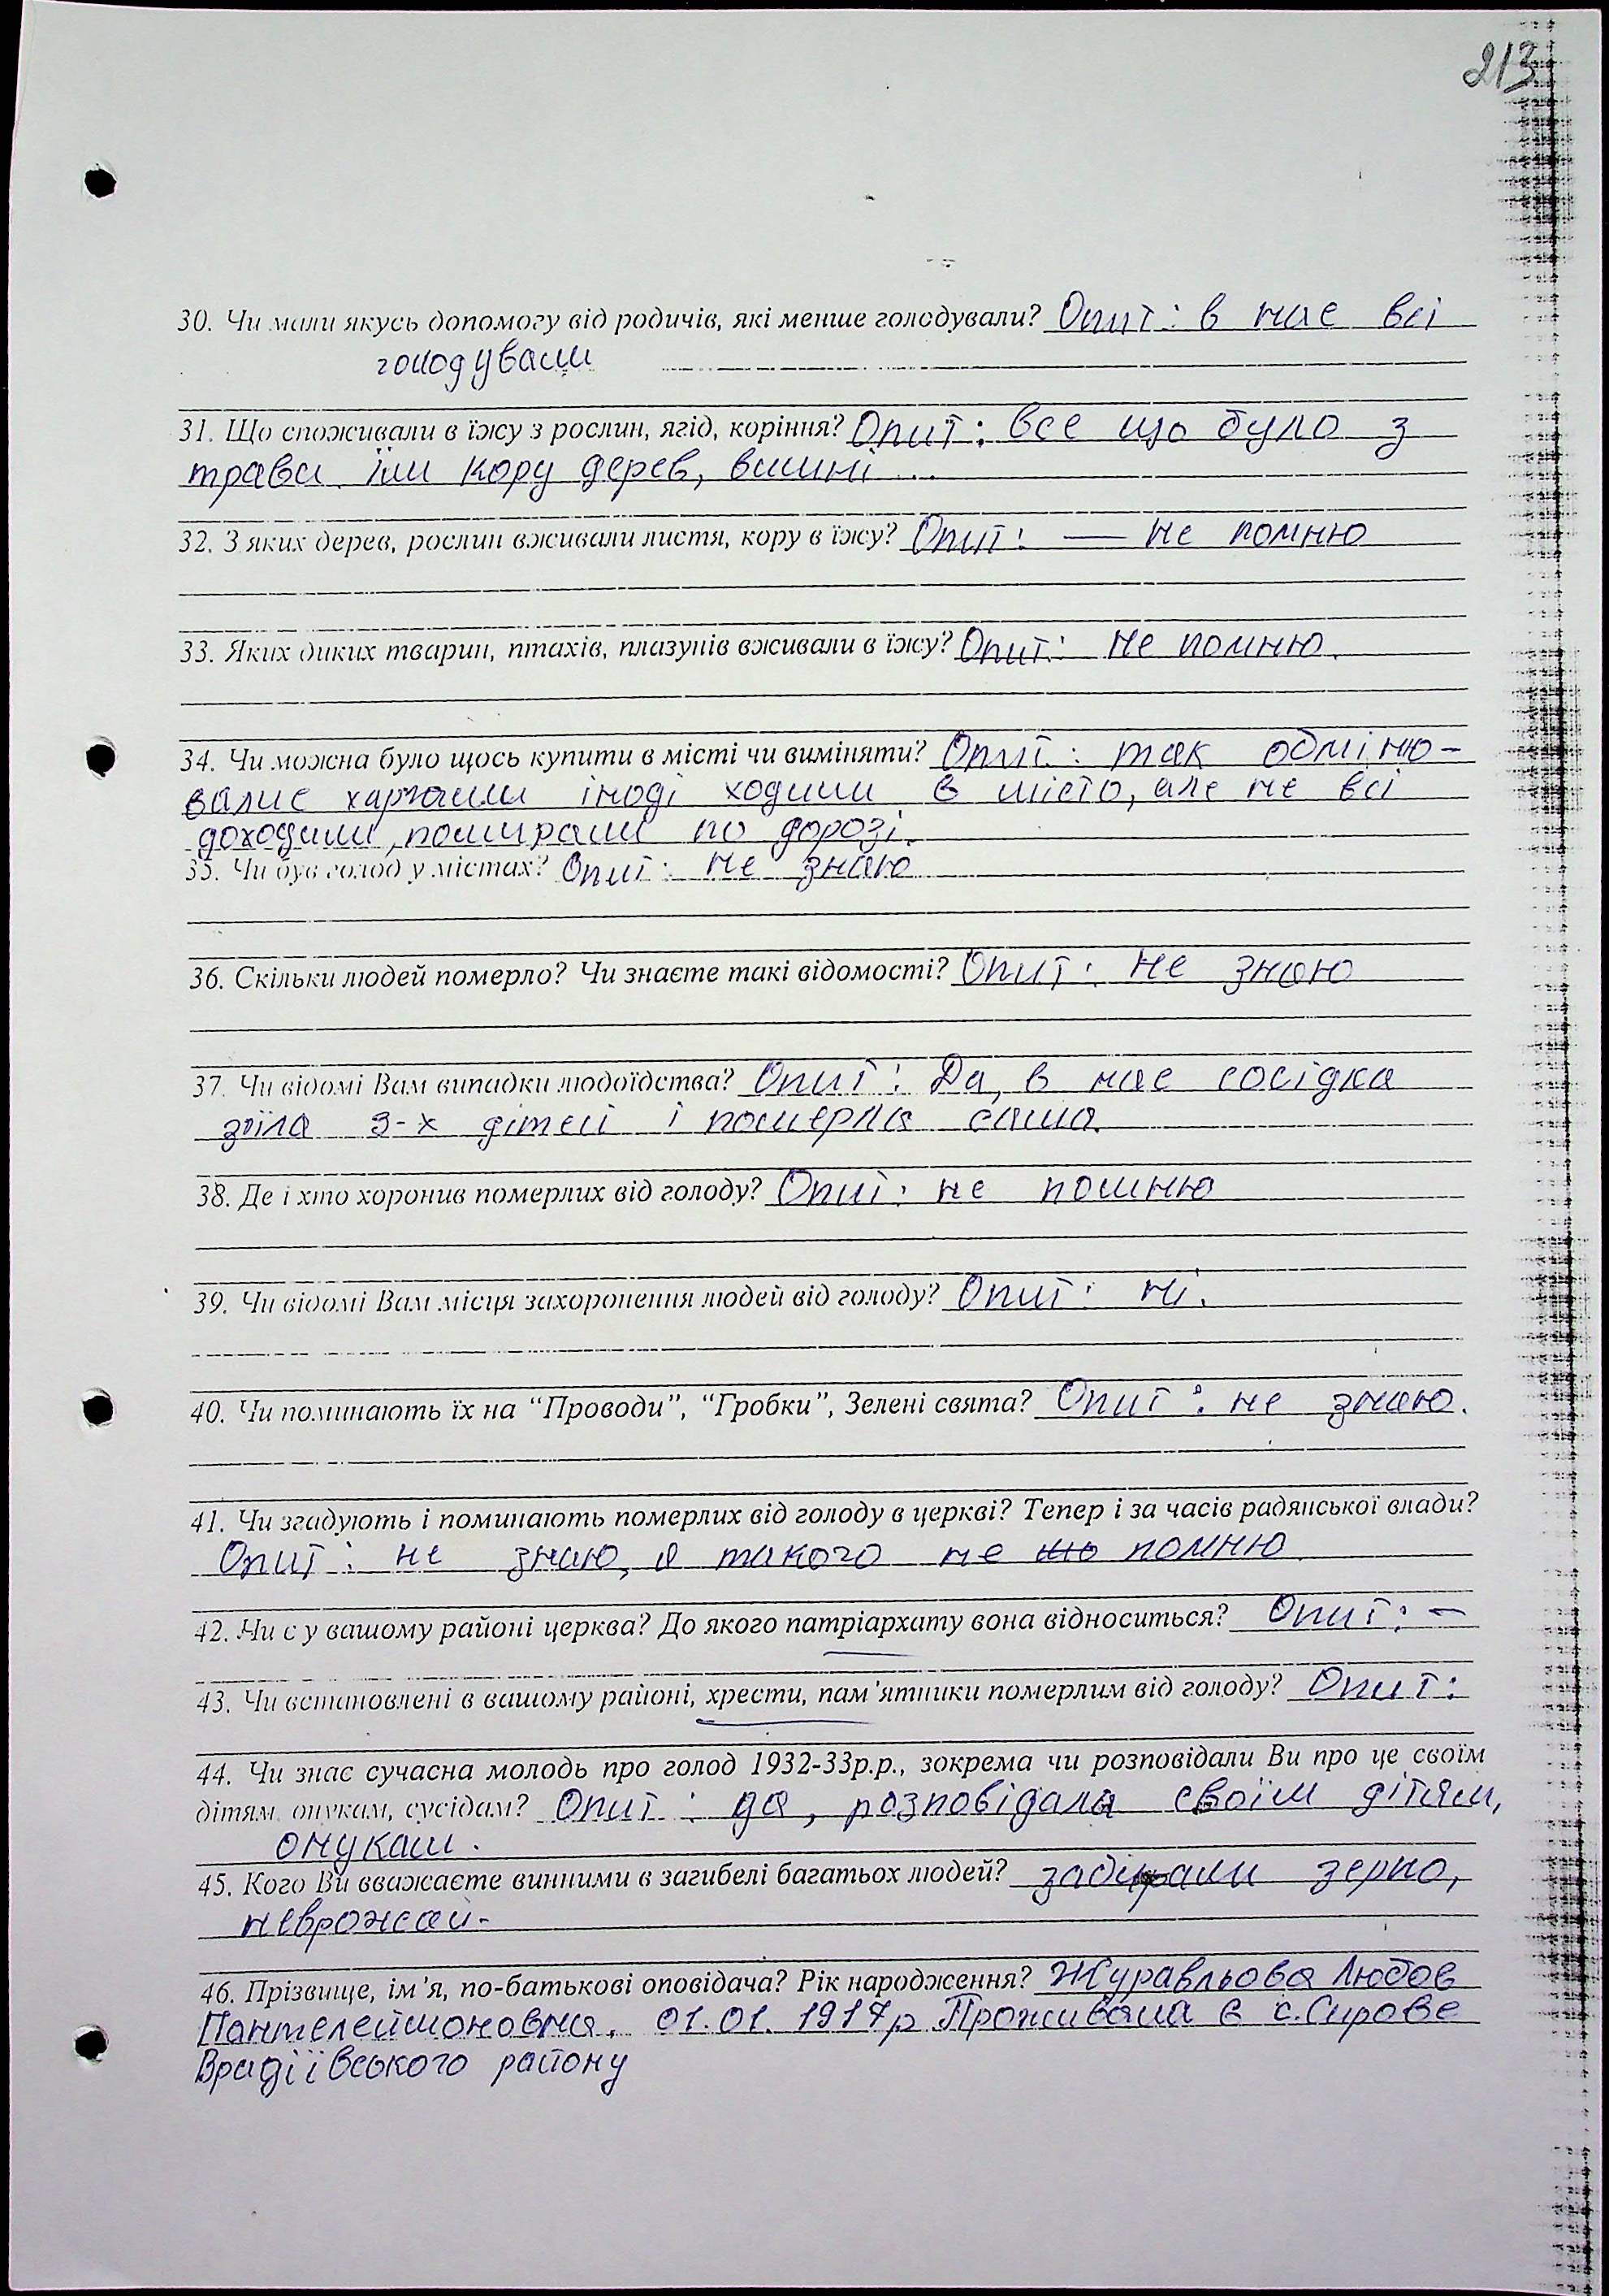 213
30. Чи мали якусь допомогу від родичів, які менше голодували? Опит: в нас всі
голодували
31. Що споживали в їжу з рослин, ягід, коріння? Опит: все що було з
трави їли кору дерев, вишні...
32. З яких дерев, рослин вживали листя, кору в їжу? Опит: — не помню
33. Яких диких тварин, птахів, плазунів вживали в їжу? Опит: не помню.
34. Чи можна було щось купити в місті чи виміняти? Опит: так обміню-
валис харчами іноді ходили в місто, але не всі
доходили, помирали по дорозі.
35. Чи був голод у містах? Опит: не знаю
36. Скільки людей померло? Чи знаєте такі відомості? Опит: не знаю
37. Чи відомі Вам випадки людоїдства? Опит: Да, в нас сосідка
зїла 3-х дітей і померла сама.
38. Де і хто хоронив померлих від голоду? Опит: не помню
39. Чи відомі Вам місця захоронення людей від голоду? Опит: ні.
40. Чи поминають їх на “Проводи”, “Гробки”, Зелені свята? Опит: не знаю.
41. Чи згадують і поминають померлих від голоду в церкві? Тепер і за часів радянської влади?
Опит: не знаю, я такого не помню
42. Чи є у вашому районі церква? До якого патріархату вона відноситься? Опит: –
43. Чи встановлені в вашому районі, хрести, пам'ятники померлим від голоду? Опит:
44. Чи знає сучасна молодь про голод 1932-33р.р., зокрема чи розповідали Ви про це своїм
дітям, онукам, сусідам? Опит: да, розповідала своїм дітям,
онукам.
45. Кого Ви вважаєте винними в загибелі багатьох людей? забирали зерно,
неврожаи-
46. Прізвище, ім'я, по-батькові оповідача? Рік народження? Журавльова Любов
Пантелеймоновна, 01.01. 1917р Проживала в с. Сирове
Врадіївського району